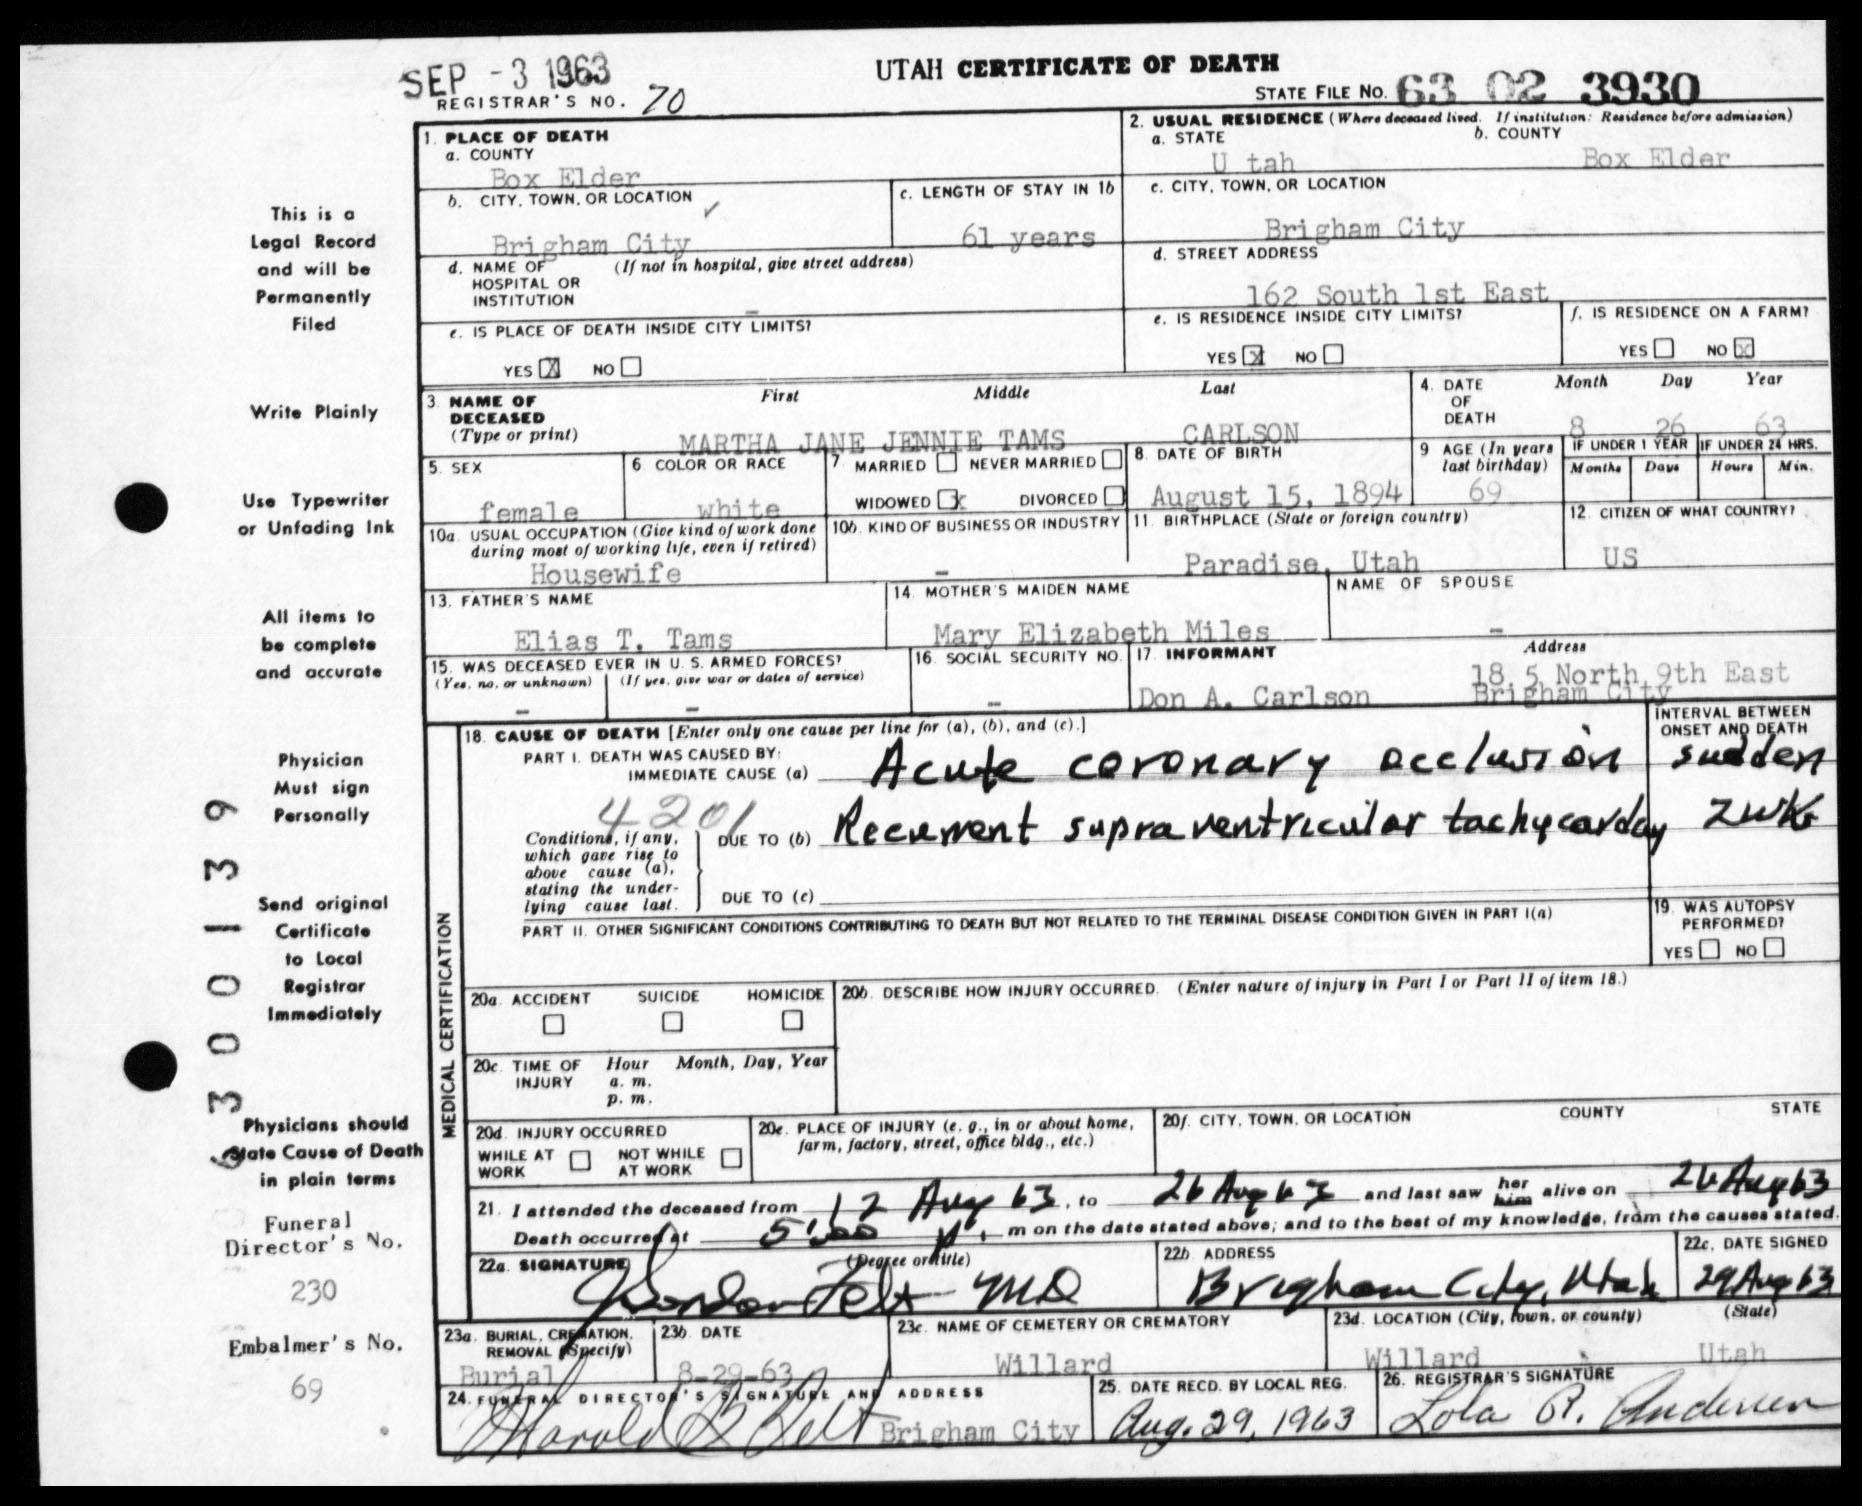 SEP - 3 1963
UTAH CERTIFICATE OF DEATH
REGISTRAR'S NO. 70
STATE FILE NO. 63 02 3930
1. PLACE OF DEATH
a. COUNTY
Box Elder
2. USUAL RESIDENCE (Where deceased lived. If institution: Residence before admission)
a. STATE
U tah
b. COUNTY
Box Elder
b. CITY, TOWN, OR LOCATION ✓
Brigham City
c. LENGTH OF STAY IN 1b
61 years
c. CITY, TOWN, OR LOCATION
Brigham City
d. NAME OF HOSPITAL OR INSTITUTION (If not in hospital, give street address)
-
d. STREET ADDRESS
162 South 1st East
e. IS PLACE OF DEATH INSIDE CITY LIMITS?
YES X NO
e. IS RESIDENCE INSIDE CITY LIMITS?
YES X NO
f. IS RESIDENCE ON A FARM?
YES NO X
3. NAME OF DECEASED (Type or print)
First Middle Last
MARTHA JANE JENNIE TAMS CARLSON
4. DATE OF DEATH
Month Day Year
8 26 63
5. SEX
female
6 COLOR OR RACE
white
7 MARRIED NEVER MARRIED
WIDOWED x DIVORCED
8. DATE OF BIRTH
August 15, 1894
9 AGE (In years last birthday)
69
IF UNDER 1 YEAR
Months Days
IF UNDER 24 HRS.
Hours Min.
10a. USUAL OCCUPATION (Give kind of work done during most of working life, even if retired)
Housewife
10b. KIND OF BUSINESS OR INDUSTRY
-
11. BIRTHPLACE (State or foreign country)
Paradise, Utah
12. CITIZEN OF WHAT COUNTRY?
US
13. FATHER'S NAME
Elias T. Tams
14. MOTHER'S MAIDEN NAME
Mary Elizabeth Miles
NAME OF SPOUSE
-
15. WAS DECEASED EVER IN U. S. ARMED FORCES?
(Yes, no, or unknown) (If yes, give war or dates of service)
- -
16. SOCIAL SECURITY NO.
-
17. INFORMANT
Don A. Carlson
Address
18.5 North 9th East
Brigham City
MEDICAL CERTIFICATION
18. CAUSE OF DEATH [Enter only one cause per line for (a), (b), and (c).]
INTERVAL BETWEEN ONSET AND DEATH
PART I. DEATH WAS CAUSED BY:
IMMEDIATE CAUSE (a) Acute coronary occlusion sudden
4201
Conditions, if any, which gave rise to above cause (a), stating the underlying cause last.
DUE TO (b) Recurrent supraventricular tachycarday 2wk
DUE TO (c)
PART II. OTHER SIGNIFICANT CONDITIONS CONTRIBUTING TO DEATH BUT NOT RELATED TO THE TERMINAL DISEASE CONDITION GIVEN IN PART I(a)
19. WAS AUTOPSY PERFORMED?
YES NO
20a. ACCIDENT SUICIDE HOMICIDE
20b. DESCRIBE HOW INJURY OCCURRED. (Enter nature of injury in Part I or Part II of item 18.)
20c. TIME OF INJURY Hour Month, Day, Year
a. m.
p. m.
20d. INJURY OCCURRED
WHILE AT WORK NOT WHILE AT WORK
20e. PLACE OF INJURY (e. g., in or about home, farm, factory, street, office bldg., etc.)
20f. CITY, TOWN, OR LOCATION COUNTY STATE
21. I attended the deceased from 12 Aug 63, to 26 Aug 63 and last saw her him alive on 26 Aug 63
Death occurred at 5:00 p. m on the date stated above; and to the best of my knowledge, from the causes stated.
22a. SIGNATURE (Degree or title)
Gordon Felt MD
22b. ADDRESS
Brigham City, Utah
22c. DATE SIGNED
29 Aug 63
23a. BURIAL, CREMATION, REMOVAL (Specify)
Burial
23b. DATE
8-29-63
23c. NAME OF CEMETERY OR CREMATORY
Willard
23d. LOCATION (City, town, or county) (State)
Willard Utah
24. FUNERAL DIRECTOR'S SIGNATURE AND ADDRESS
Harold B Felt Brigham City
25. DATE RECD. BY LOCAL REG.
Aug. 29, 1963
26. REGISTRAR'S SIGNATURE
Lola R. Andersen
This is a
Legal Record
and will be
Permanently
Filed
Write Plainly
Use Typewriter
or Unfading Ink
All items to
be complete
and accurate
Physician
Must sign
Personally
Send original
Certificate
to Local
Registrar
Immediately
Physicians should
State Cause of Death
in plain terms
Funeral
Director's No.
230
Embalmer's No.
69
6300139